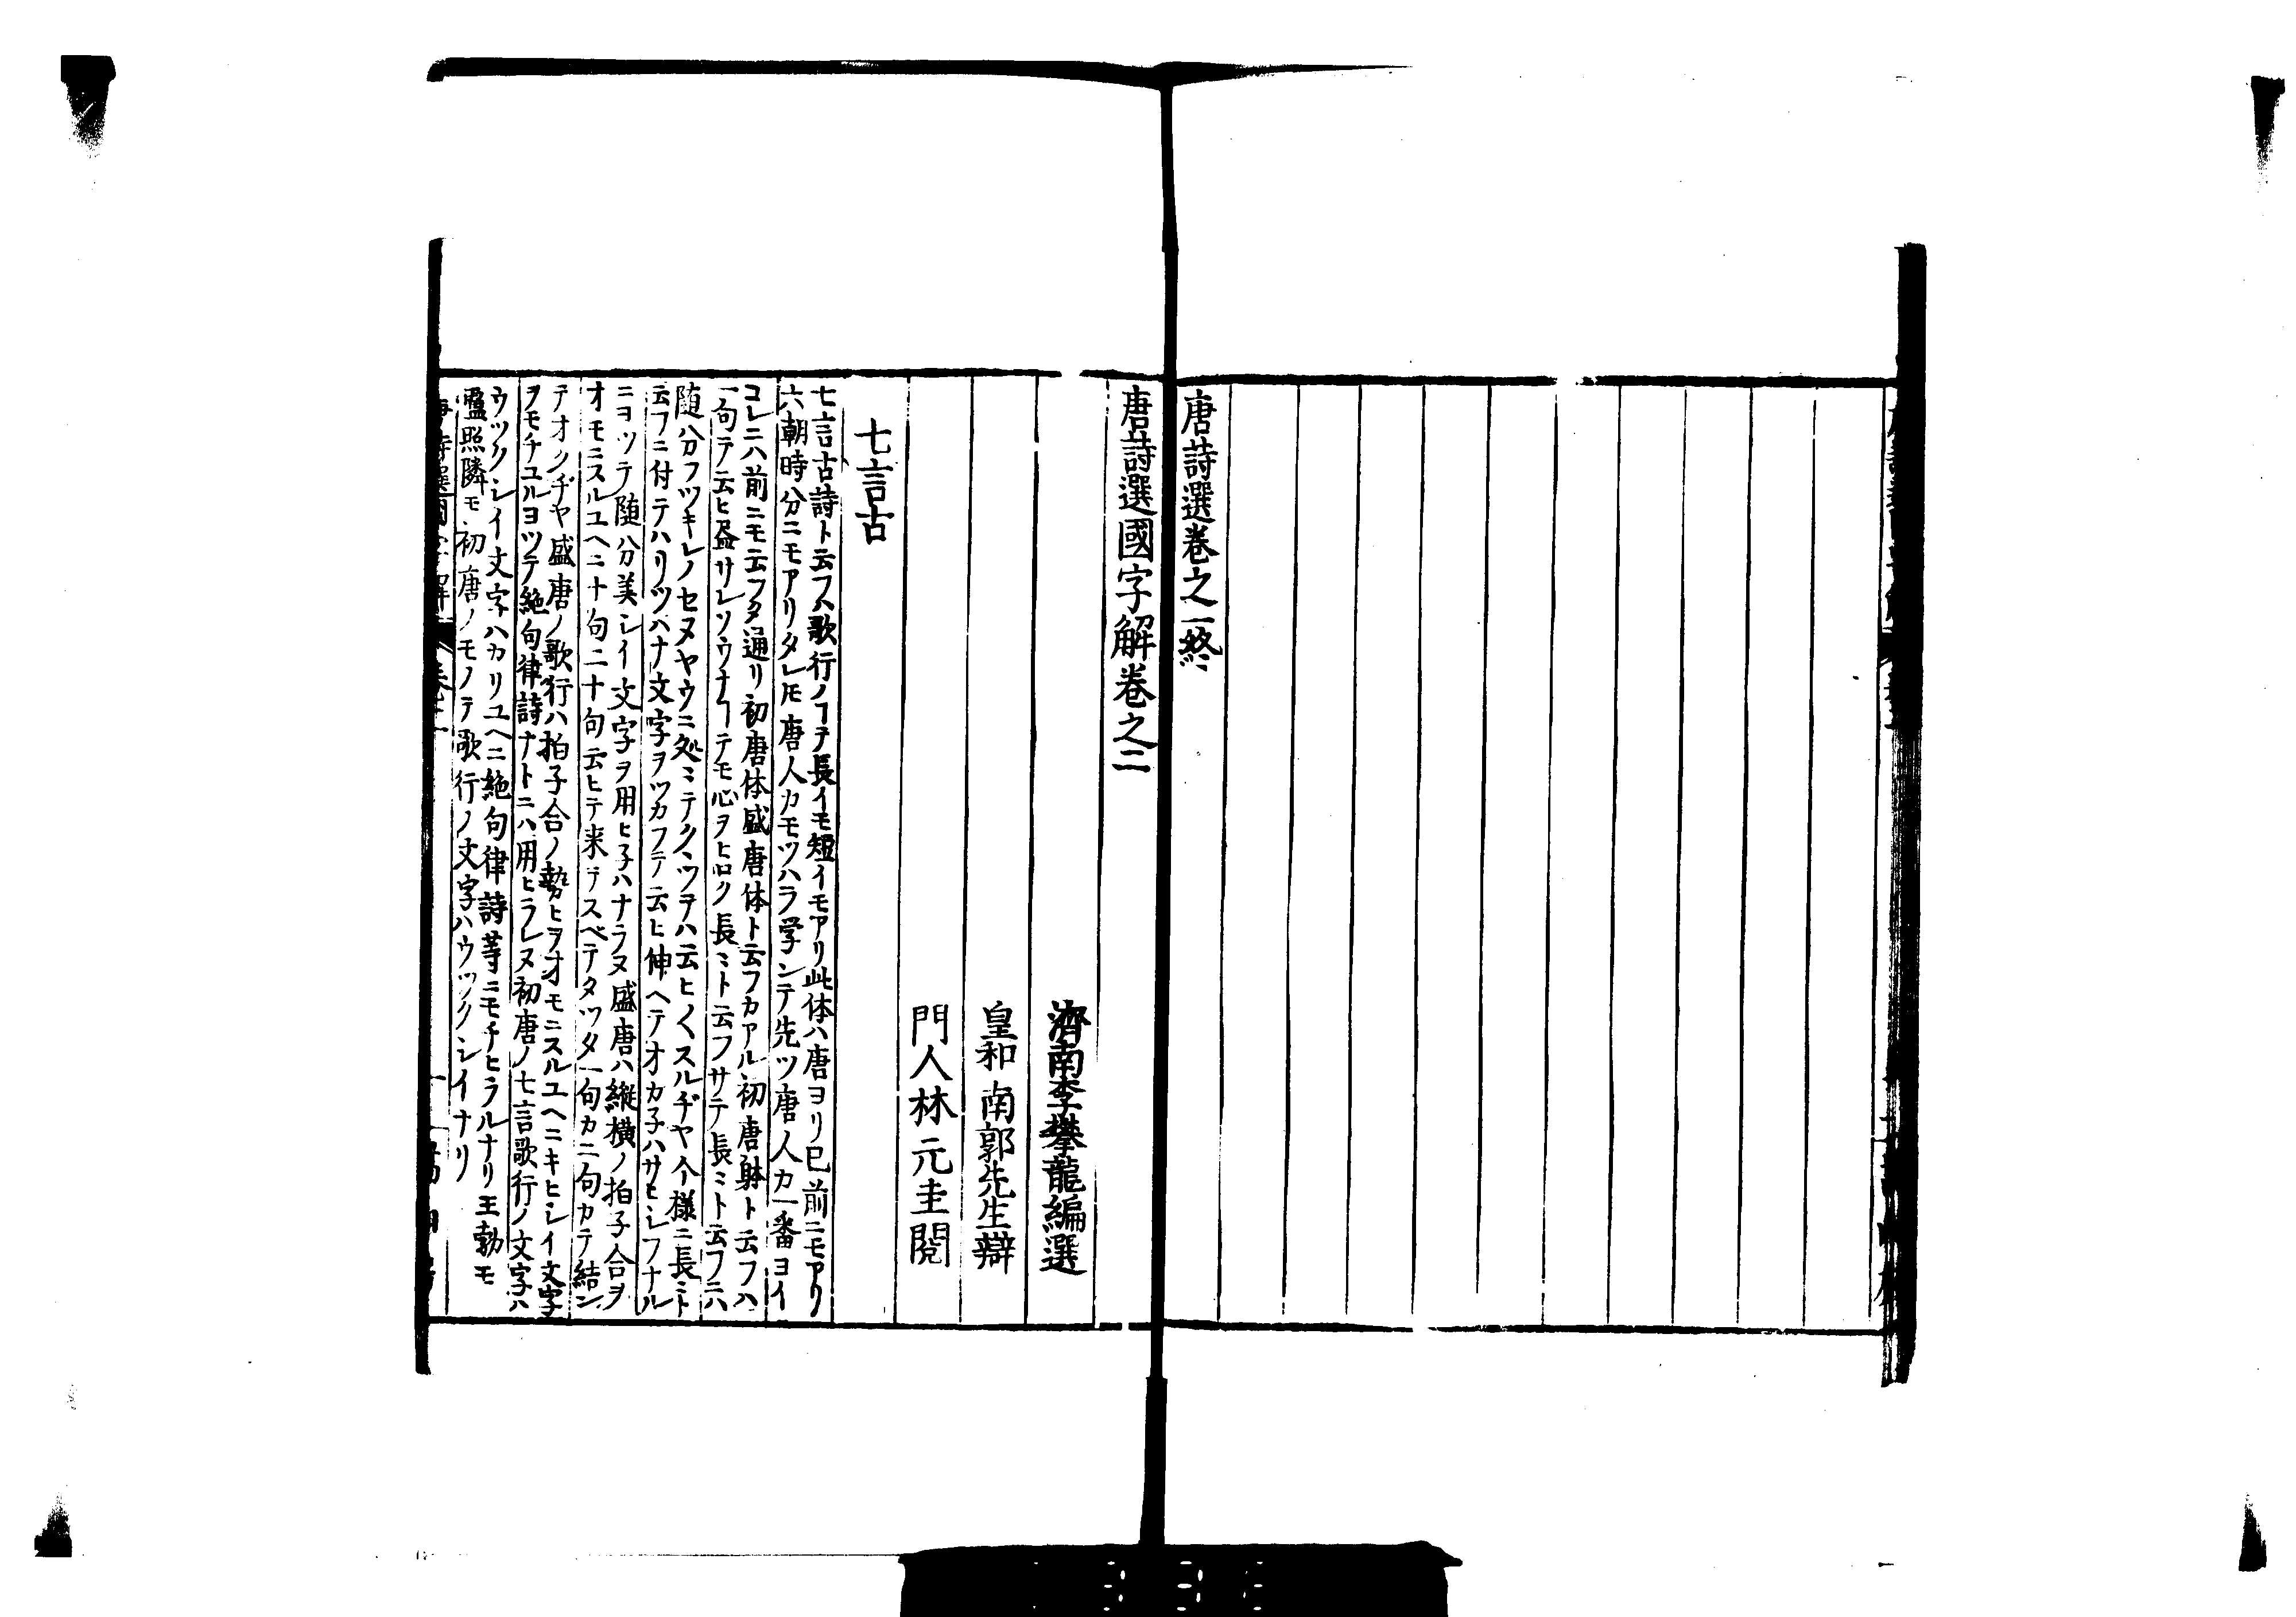 唐詩選巻之一終
唐詩選國字解巻之二
濟南李攀龍編選
皇和南郭先生辯
門人林元圭閲
七言古
七言古詩ト云フハ歌行ノヿテ長イモ短イモアリ此体ハ唐ヨリ已前ニモアリ
六朝時分ニモアリタレ𪜈唐人カモツハラ学ンテ先ツ唐人カ一番ヨイ
コレニハ前ニモ云フタ通リ初唐体盛唐体ト云フカアル初唐躰ト云フハ
一句テ云ヒ盡サレソウナヿテモ心ヲヒロク長ミト云フサテ長ミト云フニハ
随分フツキレノセヌヤウニ処ミテクヽツテハ云ヒ〱スルヂヤ个様ニ長ミト
云フニ付テハリツハナ文字ヲツカフテ云ヒ伸ヘテオカ子ハサヒシフナル
ニヨツテ随分美シイ文字ヲ用ヒ子ハナラヌ盛唐ハ縦横ノ拍子合ヲ
オモニスルユヘニ十句二十句云ヒテ来テスベテタツタ一句カ二句カテ結ン
テオクヂヤ盛唐ノ歌行ハ拍子合ノ勢ヒヲオモニスルユヘニキヒシイ文字
ヲモチユルヨツテ絶句律詩ナトニハ用ヒラレヌ初唐ノ七言歌行ノ文字ハ
ウツクシイ文字ハカリユヘニ絶句律詩等ニモチヒラルナリ王勃モ
盧照隣モ初唐ノモノテ歌行ノ文字ハウツクシイナリ